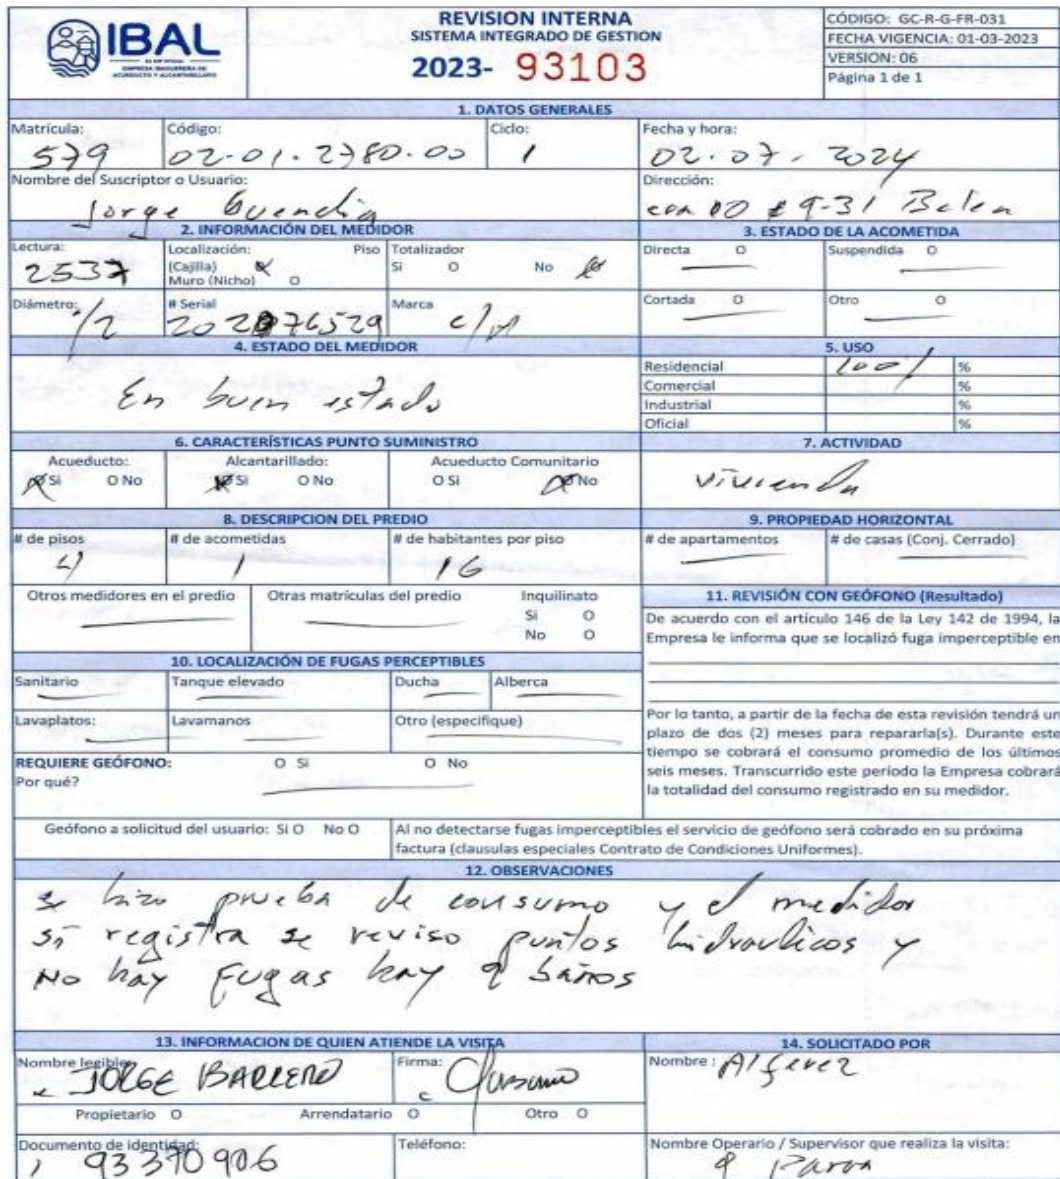 IBAL
SA ESP OFICIAL
EMPRESA IBAGUEREÑA DE
ACUEDUCTO Y ALCANTARILLADO
REVISION INTERNA
SISTEMA INTEGRADO DE GESTION
2023- 93103
CÓDIGO: GC-R-G-FR-031
FECHA VIGENCIA: 01-03-2023
VERSION: 06
Página 1 de 1
1. DATOS GENERALES
Matrícula: 579
Código: 02-01.2780.00
Ciclo: 1
Fecha y hora: 02.07.2024
Nombre del Suscriptor o Usuario: Jorge
Dirección: 9-31 Belen
2. INFORMACIÓN DEL MEDIDOR
Lectura: 2537
Localización: Piso
(Cajilla)
Muro (Nicho) O
Totalizador
Si O No
Diámetro: 1/2
# Serial
Marca
3. ESTADO DE LA ACOMETIDA
Directa O
Suspendida O
Cortada O
Otro O
4. ESTADO DEL MEDIDOR
En buen estado
5. USO
Residencial 100% %
Comercial %
Industrial %
Oficial %
6. CARACTERÍSTICAS PUNTO SUMINISTRO
Acueducto:
Si O No
Alcantarillado:
Si O No
Acueducto Comunitario
O Si No
7. ACTIVIDAD
vivienda
8. DESCRIPCION DEL PREDIO
# de pisos 4
# de acometidas 1
# de habitantes por piso 16
Otros medidores en el predio
Otras matrículas del predio
Inquilinato
Si O
No O
9. PROPIEDAD HORIZONTAL
# de apartamentos
# de casas (Conj. Cerrado)
10. LOCALIZACIÓN DE FUGAS PERCEPTIBLES
Sanitario
Tanque elevado
Ducha
Alberca
Lavaplatos:
Lavamanos
Otro (especifique)
REQUIERE GEÓFONO: O Si O No
Por qué?
11. REVISIÓN CON GEÓFONO (Resultado)
De acuerdo con el artículo 146 de la Ley 142 de 1994, la
Empresa le informa que se localizó fuga imperceptible en
Por lo tanto, a partir de la fecha de esta revisión tendrá un
plazo de dos (2) meses para repararla(s). Durante este
tiempo se cobrará el consumo promedio de los últimos
seis meses. Transcurrido este período la Empresa cobrará
la totalidad del consumo registrado en su medidor.
Geófono a solicitud del usuario: Si O No O
Al no detectarse fugas imperceptibles el servicio de geófono será cobrado en su próxima
factura (clausulas especiales Contrato de Condiciones Uniformes).
12. OBSERVACIONES
se hizo prueba de consumo y el medidor
si registra se reviso puntos hidraulicos y
No hay fugas hay 9 baños
13. INFORMACION DE QUIEN ATIENDE LA VISITA
Nombre legible: JORGE BARRERO
Firma:
Propietario O Arrendatario O Otro O
Documento de identidad: 93370906
Teléfono:
14. SOLICITADO POR
Nombre :
Nombre Operario / Supervisor que realiza la visita: